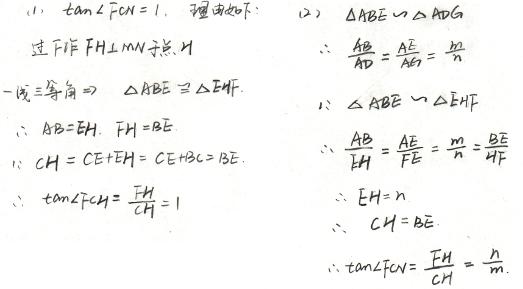 (1) tan∠FCN=1. 理由如下:
过F作FH⊥MN于点H
一线三等角⇒ △ABE≌△EHF.
∴ AB=EH. FH=BE.
∵ CH=CE+EH=CE+BC=BE.
∴ tan∠FCH=FH/CH=1
(2) △ABE∽△ADG
∴ AB/AD=AE/AG=m/n
∵ △ABE∽△EHF
∴ AB/EH=AE/FE=m/n=BE/HF
∴ EH=n
∴ CH=BE.
∴ tan∠FCN=FH/CH=n/m.